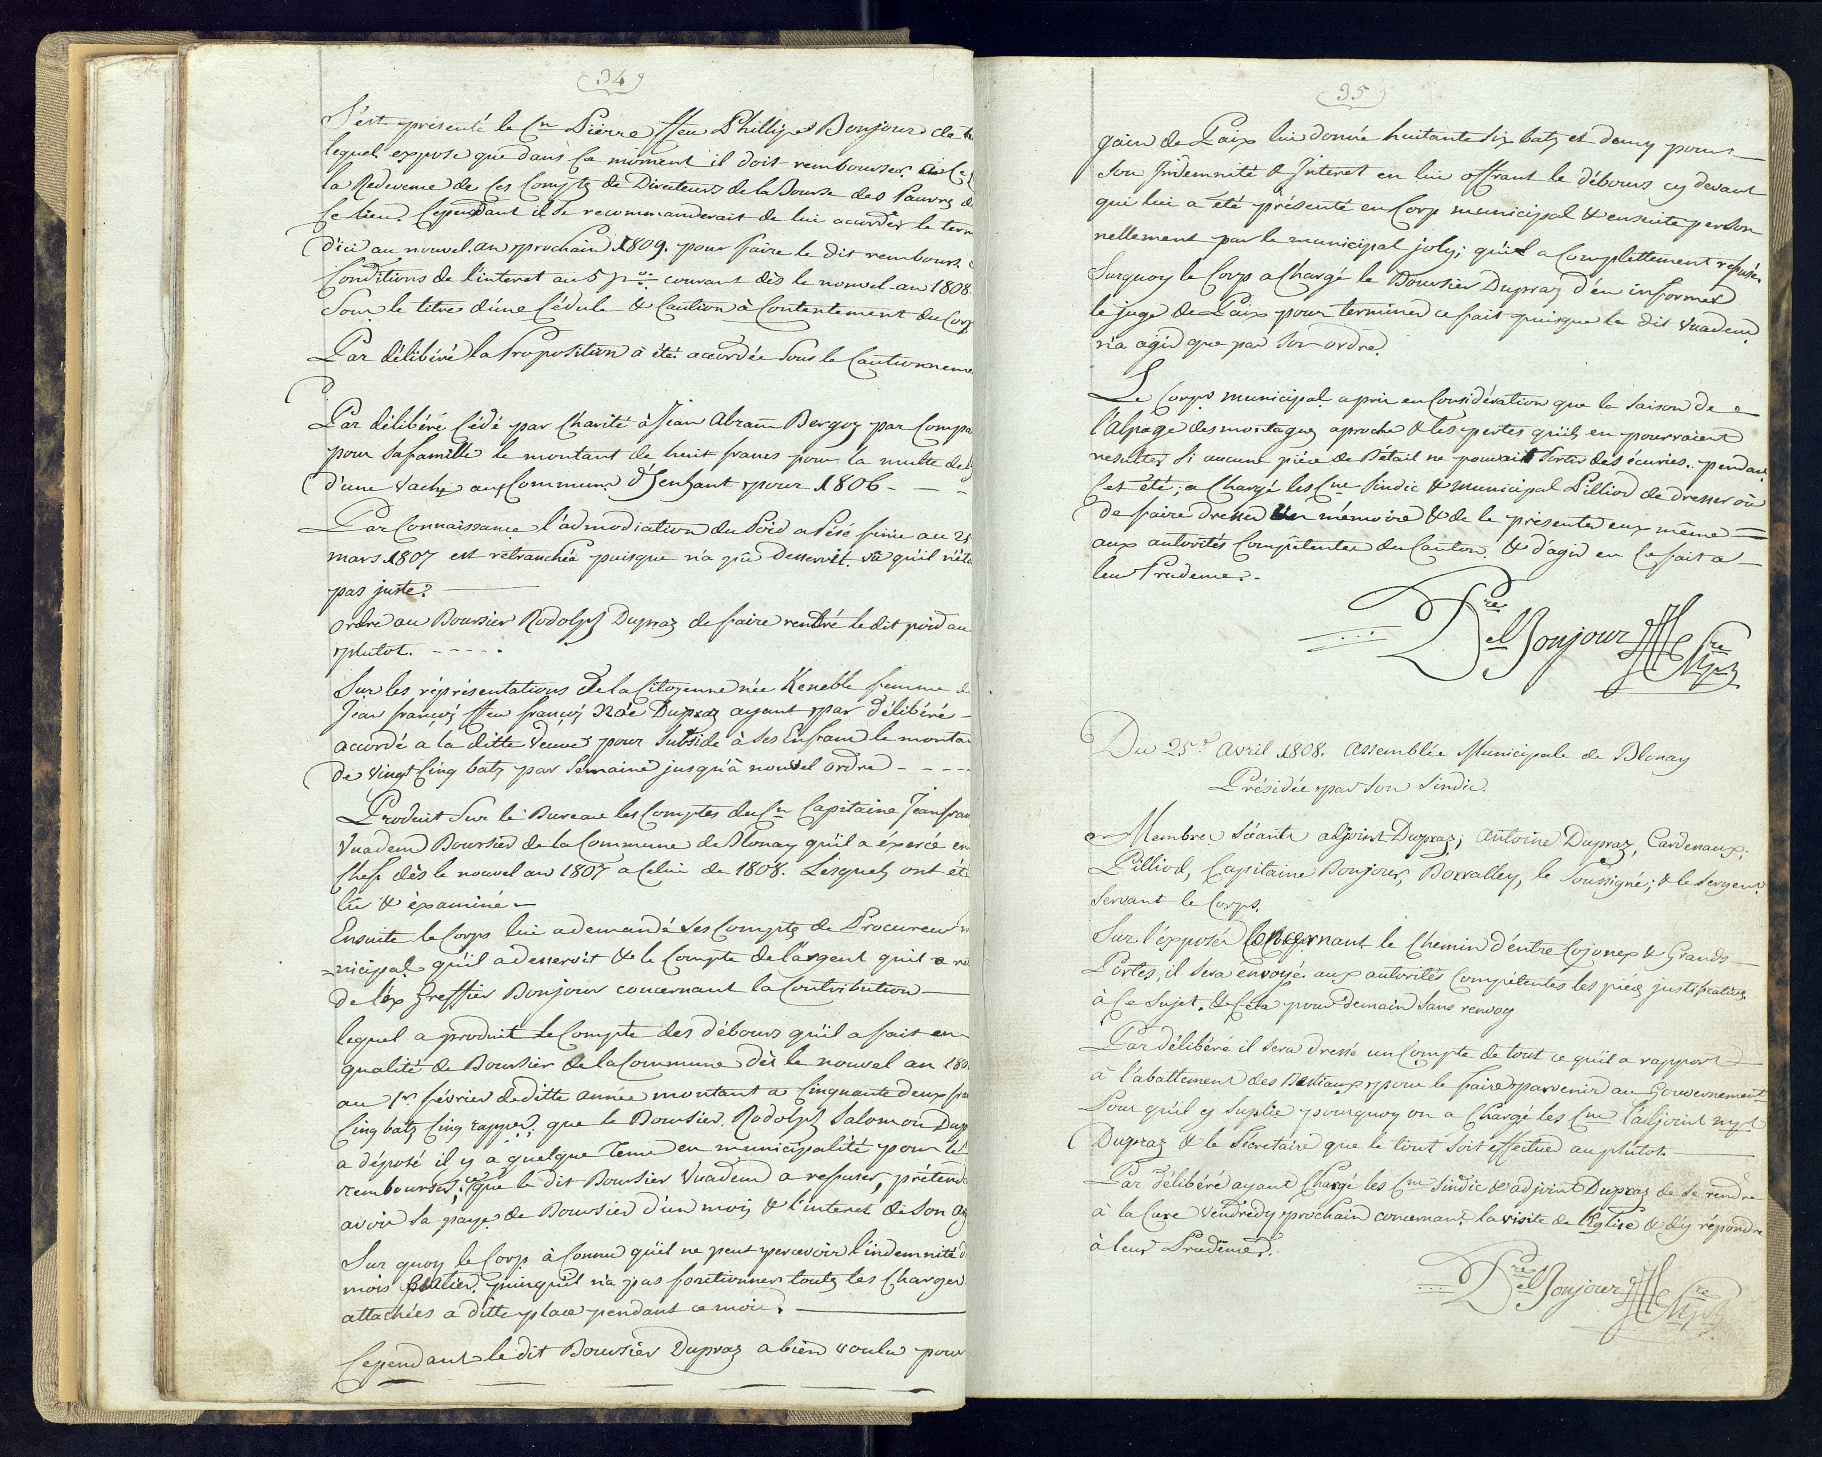 34
S'est présenté le Cn Pierre ffeu Phillipe Bonjour de
lequel expose que dans ce moment il doit rembourser
la Redevence de ces Compts de Directeurs de la Bourse des Pauvres
ce lieu. Cependant il se recommanderait de lui accorder le term
d'ici au nouvel an prochain 1809. pour faire le dit rembours.
Conditions de l'interet au 5 p. courant dès le nouvel an 1808
Sous le titre d'une Cédule & Caution à Contentement du Corp
Par délibéré la Proposition à été accordée sous le Cautionneme
Par délibéré Cédé par Charité à Jean Abram Bergoz par Compa
pour sa famille le montant de huit francs pour la multe de
d'une vache aux Communs d'Jenssant pour 1806
Par Connaissance l'admodiation du Poid a Pésé finie au 25
mars 1807 est retranchée puisque n'a pû desservit. vû qu'il n'éta
pas juste.
Ordre au Boursier Rodolph Dupraz de faire rendre le dit poid au
plutot.
Sur les réprésentations de la Citoyenne née Keneble femme d
Jean françois ffeu françois Noé Dupraz ayant par délibéré
accordé a la ditte veuve pour subside à ses Enfans le monta
de vingt Cinq batz par semaine jusqu'à nouvel ordre
Produit sur le Bureau les Comptes du Cn Capitaine Jean fran
Vuadens Boursier de la Commune de Blonay qu'il a éxercé en
Chef dès le nouvel an 1807 a Celui de 1808. Lesquels ont été
lu & éxaminé
Ensuite le Corps lui a demandé ses Compts de Procureur
nicipal qu'il a desservit & le Compte de l'argent qu'il a
de l'éx Greffier Bonjour concernant la Contribution
lequel a produit le Compte des débours qu'il a fait en
qualité de Boursier de la Commune dès le nouvel an 180
au 1r février de ditte année montant a Cinquante deux fra
Cinq batz Cinq rappes. que le Boursier Rodolph Salomon Dup
a déposé il y a quelque tems en municipalité pour lé
rembourser; que le dit Boursier Vuadens a refuser, prétenda
avoir sa paye de Boursier d'un mois & l'interet de son
Sur quoy le Corp à Connu qu'il ne peut percevoir l'indemnité d
mois Entier, puisqu'il n'a pas fonctionner touts les Charges
attachées a ditte place pendant ce mois.
Cependant le dit Boursier Dupraz a bien voulu pour
35
gain de Paix lui donné huitante six batz et demy pour
son Indemnité & Interet en lui offrant le débours cy devant
qui lui a été présenté en Corp municipal & ensuite person
nellement par le municipal joly; qu'il a Complettement refusé.
Surquoy le Corp a Chargé le Boursier Dupraz d'en informer
le juge de Paix pour terminer ce fait puisque le dit Vuadens
n'a agir que par son ordre.
Le Corps municipal a prie en Considération que la saison de
l'Alpage des montagnes aproche & les pertes qu'ils en pourraient
resulter si aucune piéce de Bétail ne pouvait sortir des écuries. pendant
Cet été; a Chargé les Cns Sindic & municipal Pilliod de dresser où
de faire dresser un mémoire & de le présenter eux même
aux autorités Compétentes du Canton. & d'agir en ce fait a
leur Prudence.
Del Bonjour
Du 25e Avril 1808. Assemblée Municipale de Blonay
Présidée par son Sindic.
Membres Séants adjoint Dupraz; Antoine Dupraz, Cardenaux;
Pilliod, Capitaine Bonjour, Borralley, le Soussigné; & le Sergent
servant le Corps.
Sur l'exposée Concernant le Chemin d'entre Cojonex & Grands
Portes, il sera envoyé aux autorités Compétentes les piéces justificatives
à ce sujet. & Cela pour demain sans renvoy
Par délibéré il sera dressé un Compte de tout ce qu'il a rapport
à l'abattement des Bestiaux pour le faire parvenir au Gouvernement
Pour qu'il y suplée pourquoy on a Chargé les Cns l'adjoint
Dupraz & le Secretaire que le tout soit effectué au plutot.
Par délibéré ayant Chargé les Cns Sindic & adjoint Dupraz de se rendre
à la Cure Vendredy prochain concernant la visite de l'Eglise & d'y répondre
à leur Prudence.
Del Bonjour